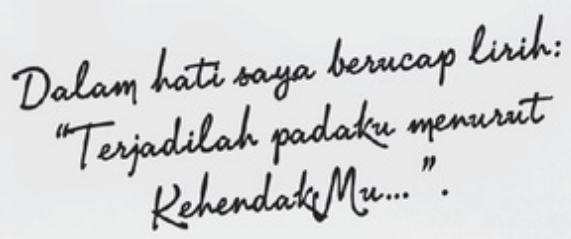 Dalam hati saya berucap lirih:
"Terjadilah padaku menurut
KehendakMu...".